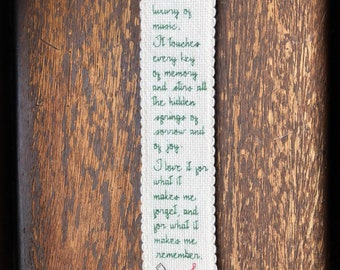 luxury of
music.
It touches
every key
of memory
and stirs all
the hidden
springs of
sorrow and
of joy.
I love it for
what it
makes me
forget, and
for what it
makes me
remember.